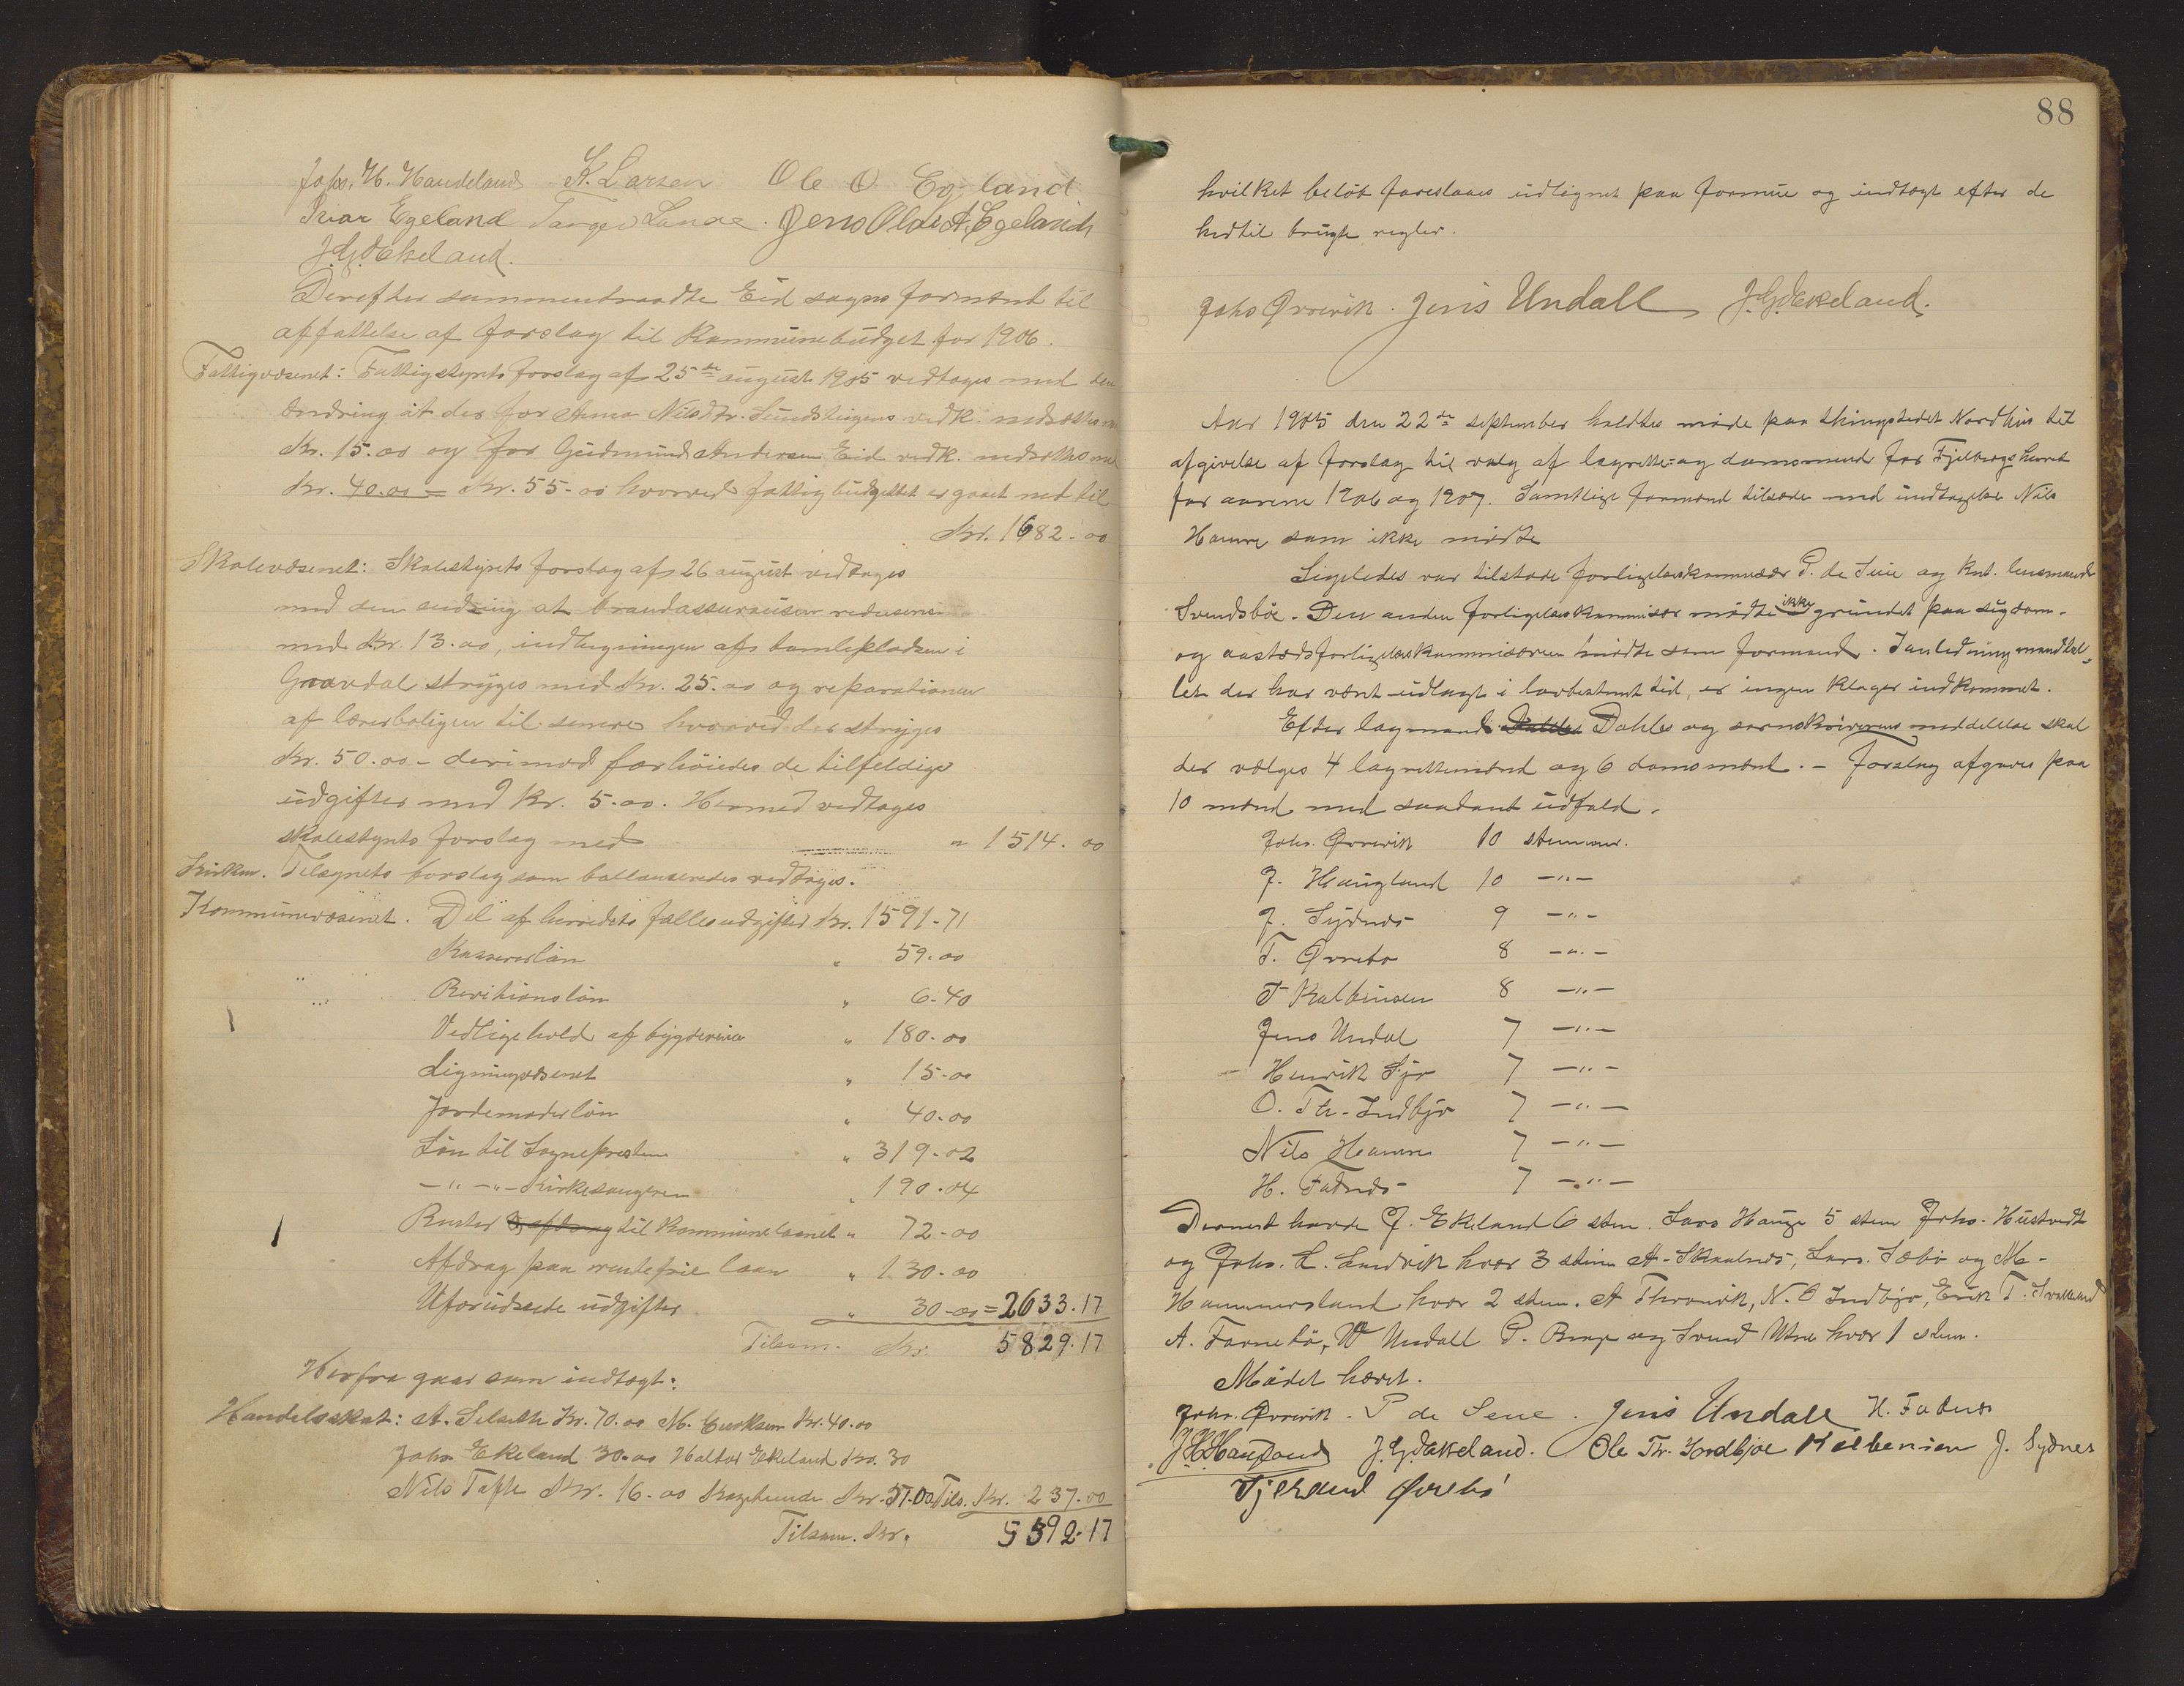 Johs. H. Handeland K. Larsen Ole O Egeland
Priar Egeland Torger Lunde. Jens Olai A. Egeland
J. G. Ekeland.
Derefter sammentraadte Eid sogns formænd til
affattelse af forslag til kommunebudget for 1906.
Fattigvæsenet: Fattigstyrets forslag af 25de august 1905 vedtages med den
ændring at der for Anna Nilsdtr. vedk. nedsættes
Kr. 15.00 og for Gudmund Andersen Eid vedk. nedsættes med
Kr. 40.00 = Kr. 55.00 hvorved fattigbudgettet er gaaet ned til
Kr. 1682.00
Skolevæsenet: Skolestyrets forslag af 26 august vedtages
med den endring at brandassuransen
med Kr. 13.00, indhegningen af tomtepladsen i
Gravdal stryges med Kr. 25.00 og reparationen
af lærerboligen til senere hvorved der stryges
Kr. 50.00 - derimod forhöiedes de tilfeldige
udgifter med Kr. 5.00. Hermed vedtages
skolestyrets forslag med " 1514.00
Kirken. Tilsynets forslag som ballanseredes vedtages.
Kommunevæsenet. Del af herredets fællesudgifter Kr. 1591-71
Kassererlön " 59.00
Revisionslön " 6-40
Vedligehold af bygdeveier " 180.00
Ligningsvæsenet " 15-00
Jordemoderlön " 40-00
Lön til Sognepresten " 319-02
-"- -"- Kirkesangeren " 190.04
Renter & afdrag til kommunelaanet " 72-00
Afdrag paa rentefrie laan " 130-00
Uforudseede udgifter " 30-00 = 2633.17
Tilsam. Kr. 5829.17
Herfra gaar som indtægt:
Handelsskat: A. Selseth Kr. 70.00 M. Eriksen Kr. 40.00
Johs. Ekeland 30.00 Haldor Ekeland Kr. 30
Nils Tofte Kr. 16.00 Kr. 51.00 Tils. Kr. 237.00
Tilsam. Kr. 5592.17
88
hvilket belöb foreslaaes udlignet paa formue og indtægt efter de
hidtil brugte regler.
Johs Örrevik. Jens Undall J. G. Ekeland.
Aar 1905 den 22de september holdtes möde paa thingstedet Nordhus til
afgivelse af forslag til valg af lagrette- og domsmænd for Fjelbergs herred
for aarene 1906 og 1907. Samtlige formænd tilstede med undtagelse Nils
Hamre som ikke mödte
Ligeledes var tilstede forligelseskommissær P. de Seue og Kst. lensmand
Svendsböe. Den anden forligelseskommissær mödte ikke grundet paa sygdom.
og aastedsforligelseskommisæren mödte som formand. I anledning mandtal-
let der har været udlagt i lovbestemt tid, er ingen klager indkommet.
Efter lagmand Dahles og sorenskriverens meddelelse skal
der vælges 4 lagrettemænd og 6 domsmænd. - Forslag afgaves paa
10 mænd med saadant udfald.
Johs. Örrevik 10 stemmer.
J. Haugland 10 -"-
J. Sydnes 9 -"-
T. Örrebö 8 -"-
T Kalbeinsen 8 -"-
Jens Undal 7 -"-
Henrik Sjo 7 -"-
O. Th. Indbjo 7 -"-
Nils Hamre 7 -"-
H. Fadnes 7 -"-
Dernæst havde J. Ekeland 6 stem. Lars Hauge 5 stem Johs. Hustvedt
og Johs. L. Sandvik hver 3 stem A. Skaalnes, Lars. Sæbö og M.
Hammersland hver 2 stem. A Thorvik, N. O Indbjo, Erik T.
A. W Undall P. og Svend Utne hver 1 stem.
Mödet hævet.
Johs. Örrevik. P de Seue. Jens Undall H. Fadnes
J. H. Haugland J. G. Ekeland. Ole Th. Indbjoe Kalbeinsen J. Sydnes
Tjeran Örebö